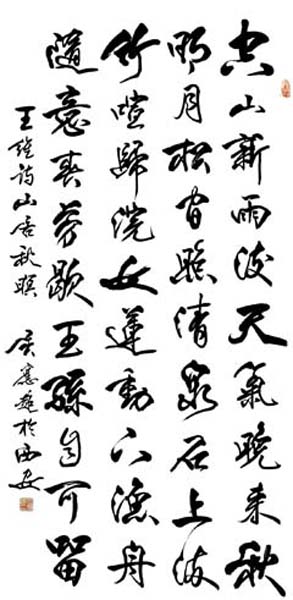 空山新雨後天氣晚來秋
明月松間照清泉石上流
竹喧歸浣女蓮動下漁舟
隨意春芳歇王孫自可留
王維詩山居秋暝 於西安